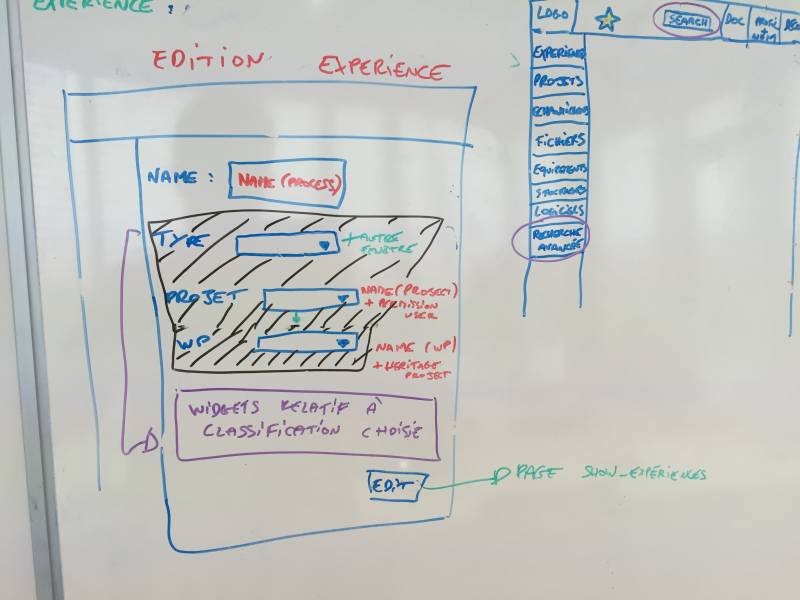 EXPERIENCE :
EDITION EXPERIENCE
NAME : NAME (PROCESS)
TYPE
+ AUTRE
FENÊTRE
PROJET
NAME (PROJECT)
+ PERMISSION
USER
WP
NAME (WP)
+ HERITAGE
PROJECT
WIDGETS RELATIF À
CLASSIFICATION CHOISIE
EDIT
PAGE SHOW_EXPÉRIENCES
LOGO
SEARCH
DOC
EXPERIENCES
PROJETS
ECHANTILLONS
FICHIERS
EQUIPEMENTS
STOCKAGES
LOGICIELS
RECHERCHE
AVANCÉE